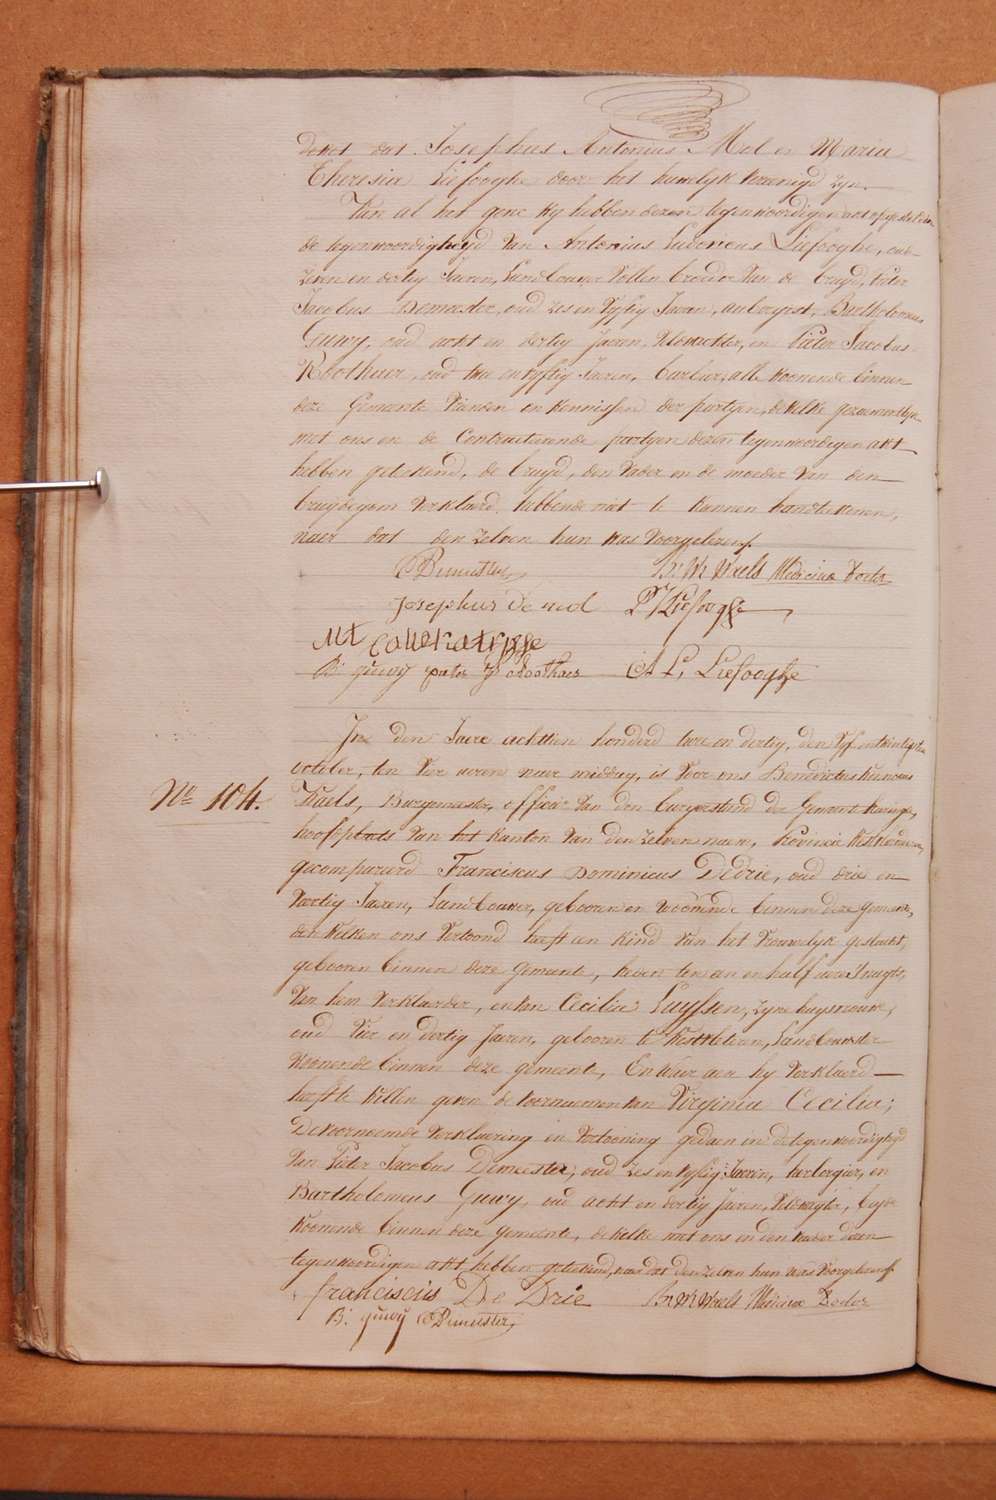 dekot dat Josephus Antonius Mol en Maria
Theresia Liefooghe door het huwelyk vereenigd zyn.
Van al het gene wy hebben dezen tegenwoordigen act opgesteld in
de tegenwoordigheyd van Antonius Ludovicus Liefooghe, oud
zeven en dertig Jaeren, Landbouwer vollen broeder van de bruyd, Pieter
Jacobus Demeester, oud zes en vyftig Jaeren, aubergist, Bartholomeus
Guwy, oud acht en dertig Jaeren, veldwachter, en Pieter Jacobus
Roothaer, oud twee en vyftig Jaeren, barbier, alle woonende binnen
deze Gemeente vrienden en kennissen der partyen, dewelke gezamentlyk
met ons en de contracterende partyen dezen tegenwoordigen akt
hebben geteekend, de bruyd, den vader en de moeder van den
bruydegom verklaerd hebbende niet te kunnen handteekenen,
naer dat den zelven hun was voorgelezen.
PDemeester Medicinæ Doctor
Josephus De mol P J Liefooghe
B: guwy pieter J Roothaer A L, Liefooghe
In den Jaere achttien honderd twee en dertig, den vyf en twintigsten
october, ten vier uren naer middag, is voor ons Benedictus
Waels, Burgemeester, officier van den burgerstand der Gemeente Haringe,
hoofdplaets van het kanton van den zelven naem, Provincie Westvlaenderen,
gecompareerd Franciscus Dominicus Dedrie, oud drie en
veertig Jaeren, Landbouwer, gebooren en woonende binnen deze gemeente,
den welken ons vertoond heeft een kind van het vrouwelyk geslacht,
gebooren binnen deze gemeente, heden ten een en half uren 's nagts,
van hem verklaerder, en van Cecilia Luyssen, zyne huysvrouwe,
oud vier en dertig Jaeren, gebooren te Westvleteren, Landbouwster
woonende binnen deze gemeente, En waer aen hy verklaerd
heeft te willen geven de voornaemen van Virginia Cecilia;
De voornoemde verklaering en vertooning gedaen in de tegenwoordigheyd
van Pieter Jacobus Demeester, oud zes en vyftig Jaeren, herbergier, en
Bartholomeus Guwy, oud acht en dertig Jaeren, veldwagter, beyde
woonende binnen deze gemeente, dewelke met ons en den vader dezen
tegenwoordigen akt hebben geteekend, naer dat den zelven hun was voorgelezen.
franciscus De Drie Medicinæ Doctor
B: guwy PDemeester
Nº 104.